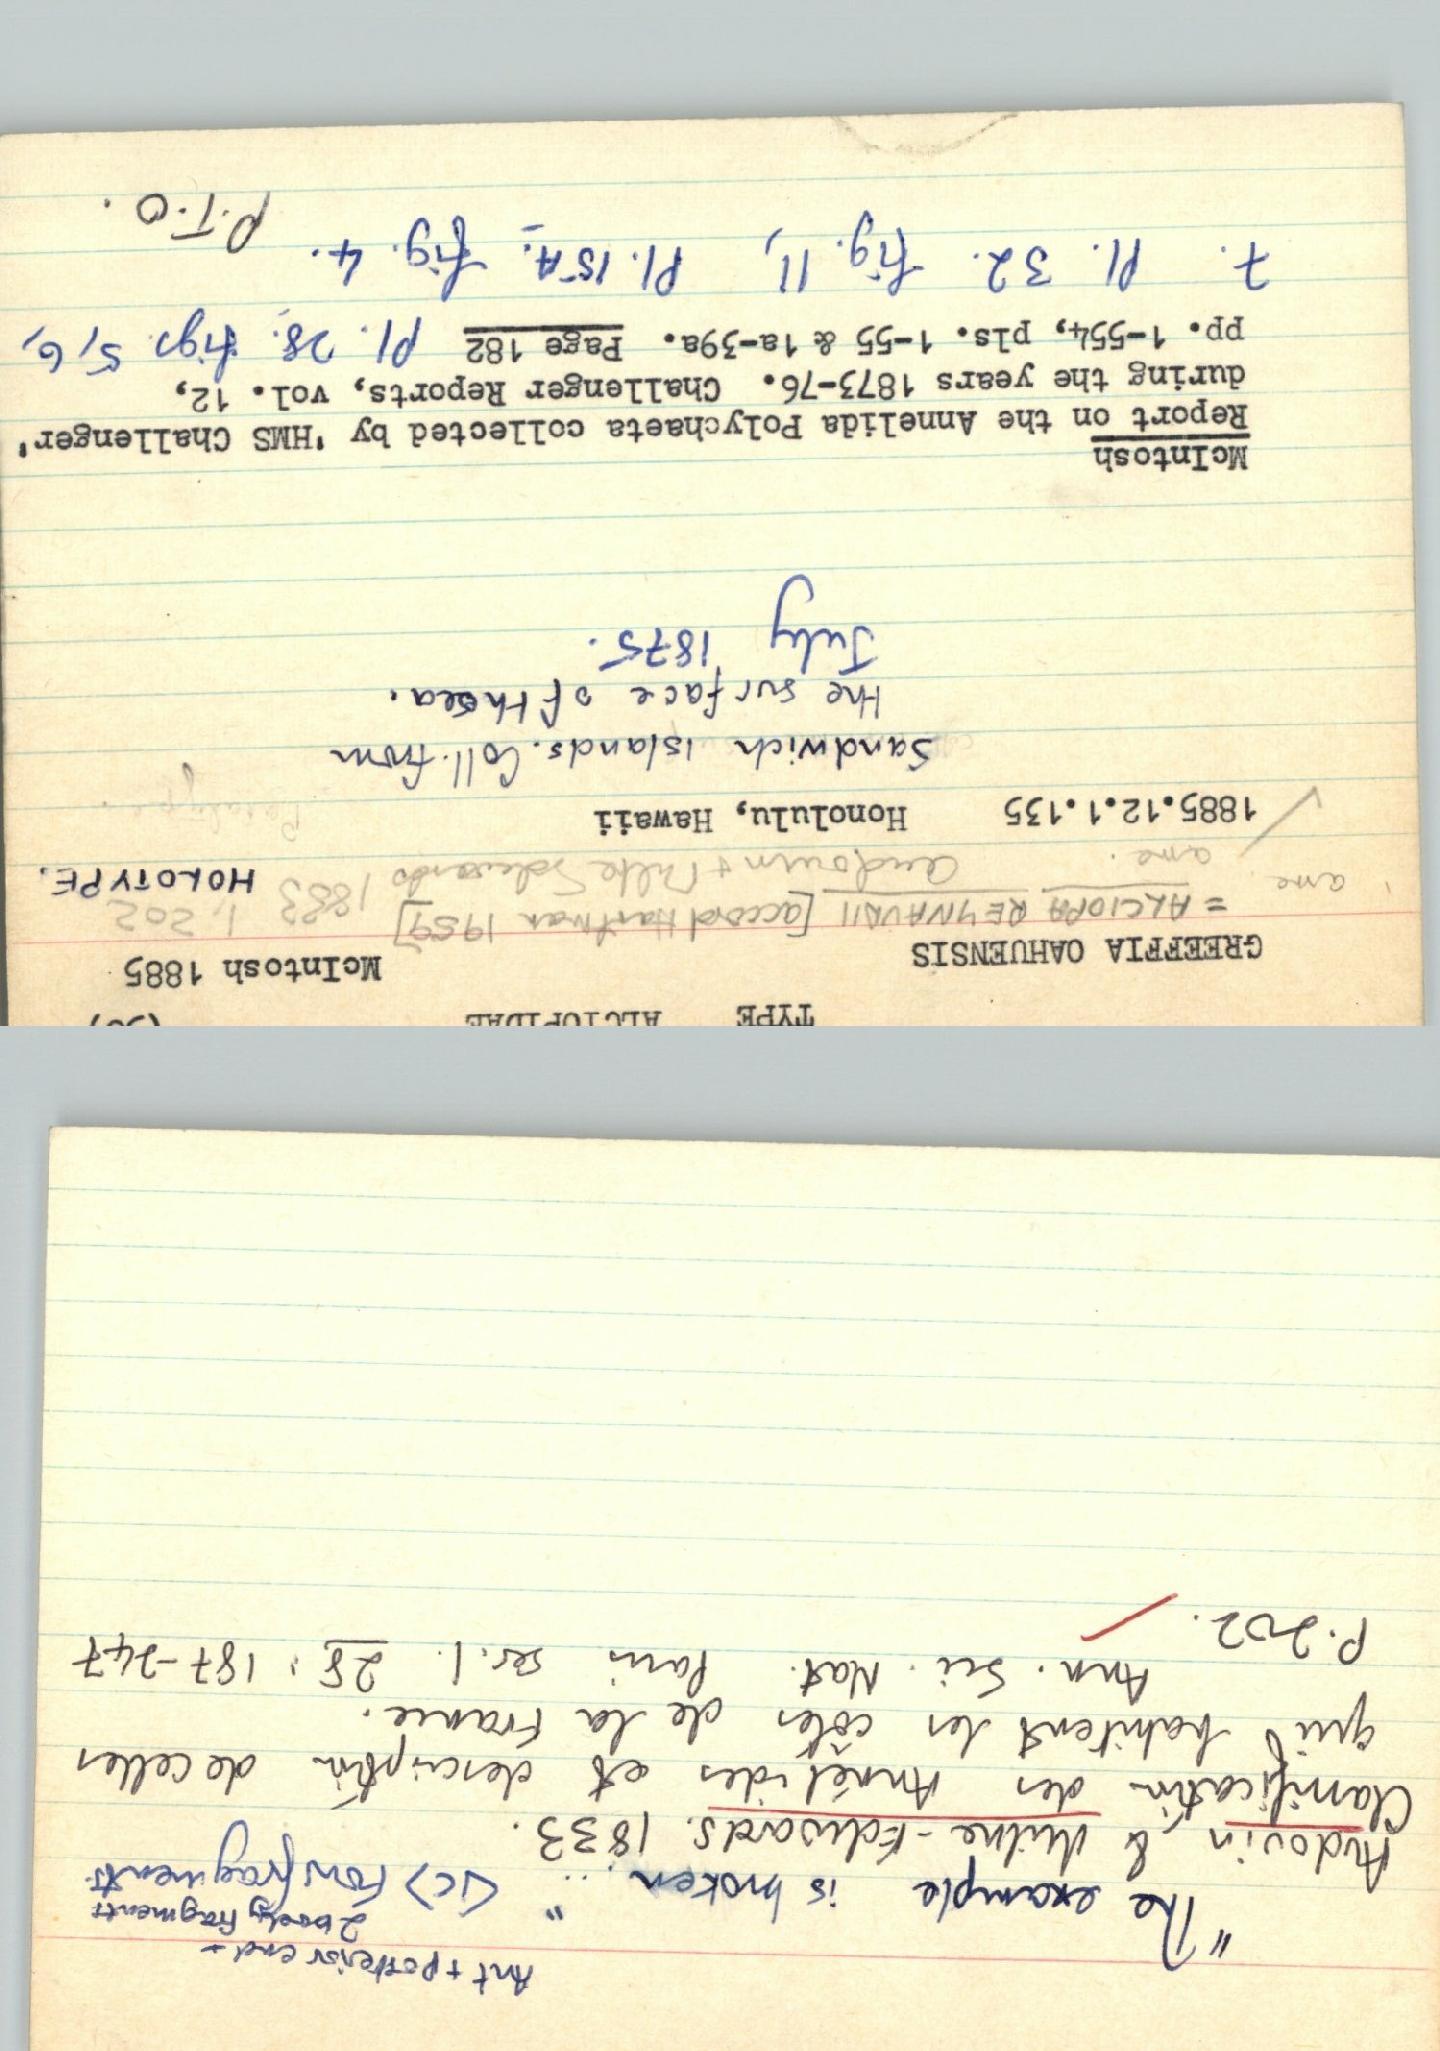 TYPE ALCIOPIDAE
GREEFFIA OAHUENSIS McIntosh 1885
= ALCIOPA REYNAUDII [accord Hartman 1959] 1, 202
ame. ame. Audouin & Milne Edwards 1833 HOLOTYPE.
1885.12.1.135 Honolulu, Hawaii Paratype.
Sandwich islands. Coll. from
the surface of the sea.
July 1875.
McIntosh
Report on the Annelida Polychaeta collected by 'HMS Challenger'
during the years 1873-76. Challenger Reports, vol. 12,
pp. 1-554, pls. 1-55 & 1a-39a. Page 182 Pl. 28. figs 5, 6,
7. Pl. 32. fig. 11, Pl. 15A. fig. 4.
P.T.O.
Ant + posterior end +
2 body fragments
"The example is broken ... " <C> Four fragments.
Audouin & Milne-Edwards. 1833.
Classification des Annélides et description de celles
qui habitent les côtes de la France.
Ann. Sci. Nat. Paris ser. 1. 28: 187-247
P. 202.